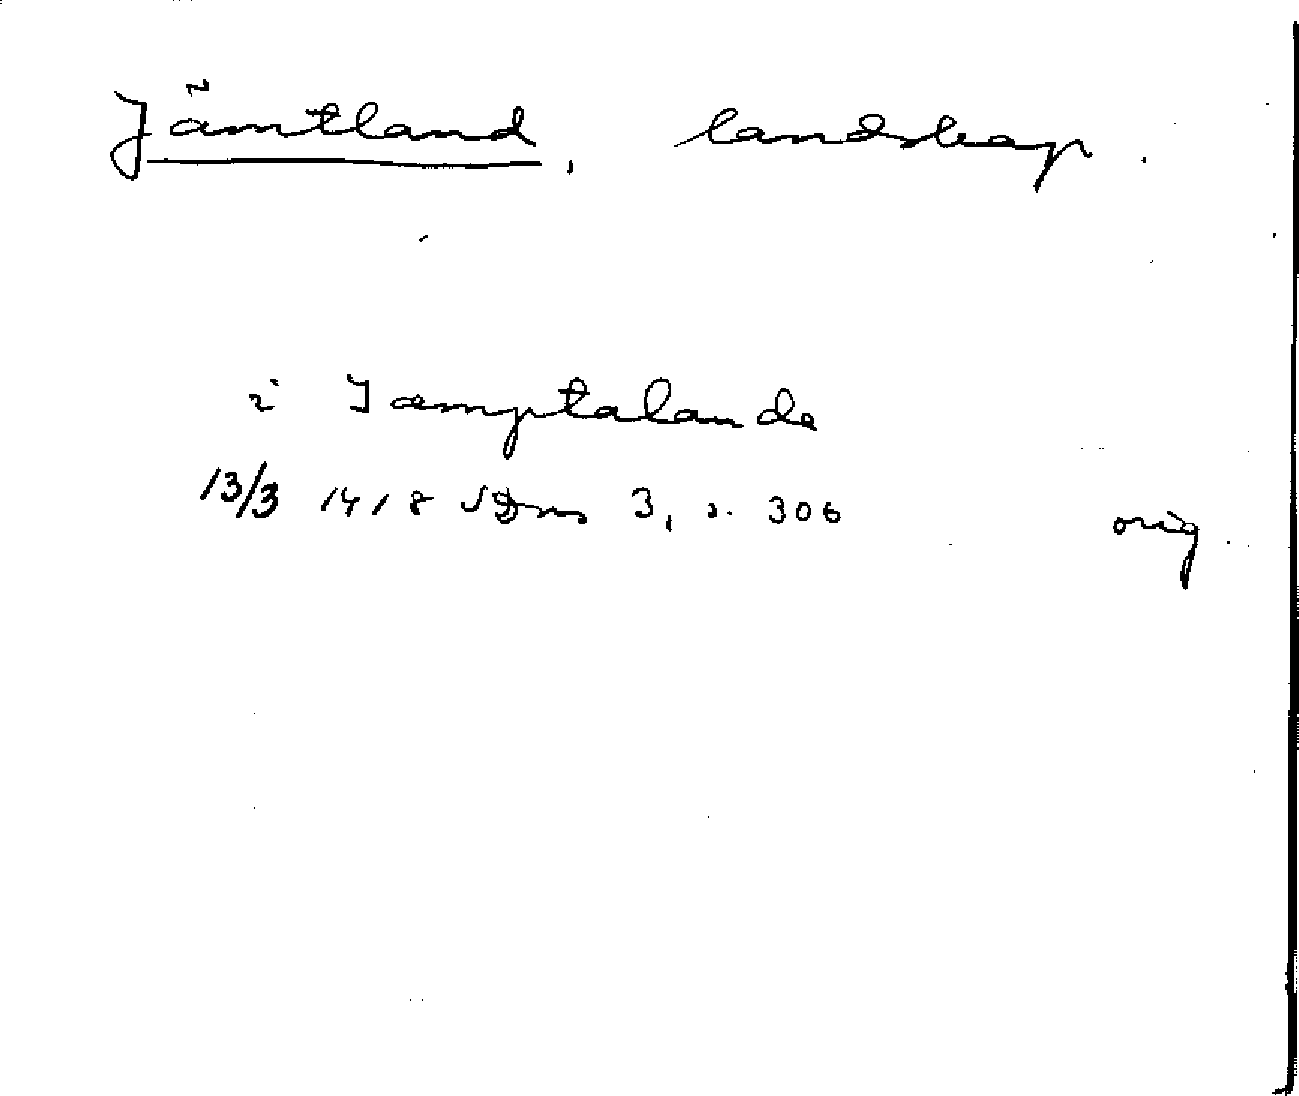 Jämtland, landskap.
i Jæmptalande
13/3 1418 SDns 3, s. 306 orig.